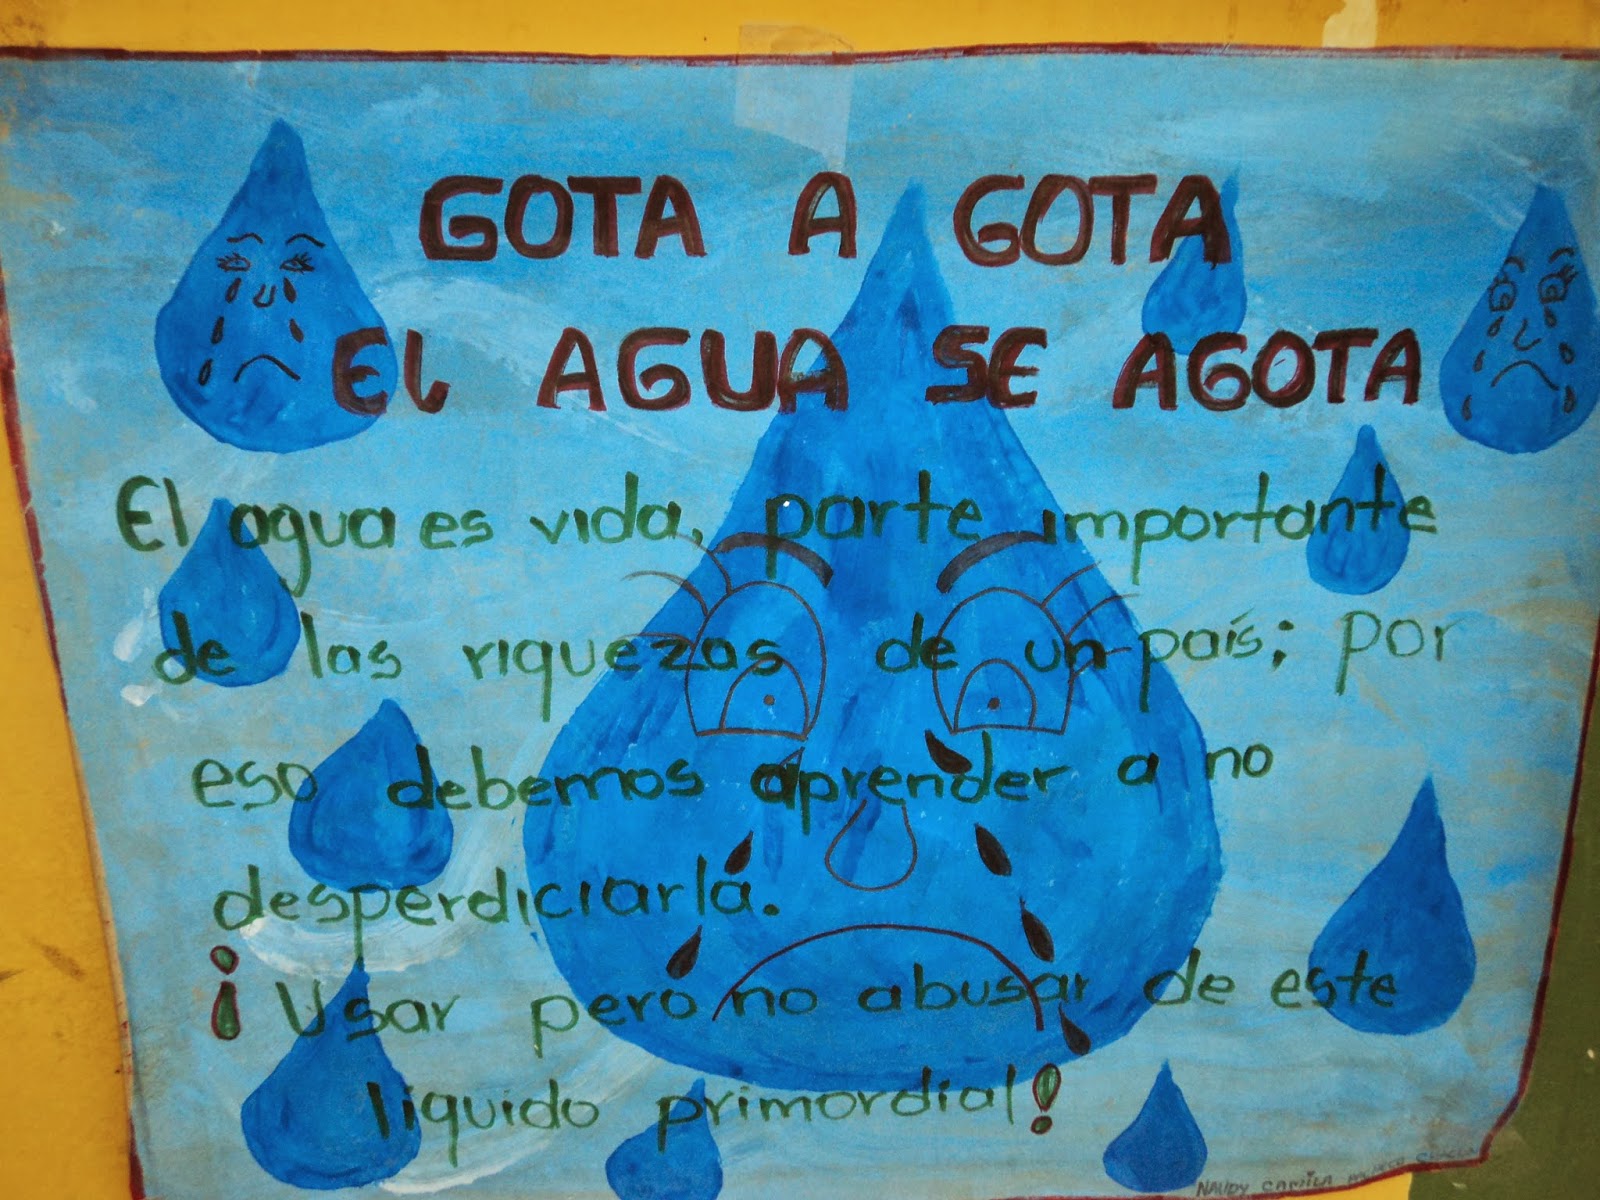 GOTA A GOTA
El AGUA SE AGOTA
El agua es vida, parte importante
de las riquezas de un país; por
eso debemos aprender a no
desperdiciarla.
¡Usar pero no abusar de este
líquido primordial!
CAMILA